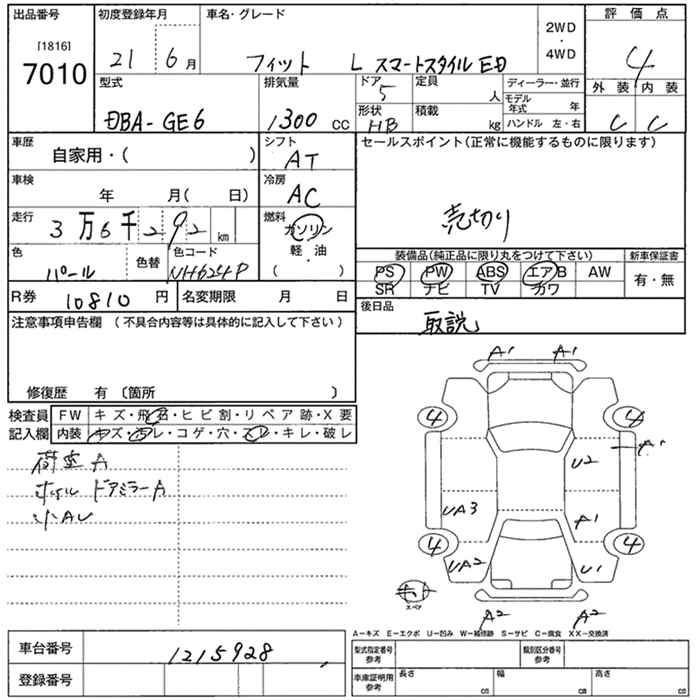 出品番号 初度登録年月 車名・グレード 2WD・4WD 評価点
[1816]
7010 21 6月 フィット L スマートスタイルED 4
型式 排気量 ドア 5 定員 人 ディーラー・並行 外装 内装
DBA-GE6 1300 CC 形状 HB 積載 kg モデル年式 年 ハンドル 左・右 C C
車歴 シフト セールスポイント(正常に機能するものに限ります)
自家用・( ) AT
車検 年 月( 日) 冷房 AC
走行 3万6千292 km 燃料 ガソリン 軽油・( ) 売切り
色 色替 色コード 装備品(純正品に限り丸をつけて下さい) 新車保証書
パール NH624P PS PW ABS エアB AW 有・無
SR ナビ TV カワ
R券 10810 円 名変期限 月 日 後日品
取説
注意事項申告欄 (不具合内容等は具体的に記入して下さい)
修復歴 有 〔箇所 〕
検査員 FW キズ・飛石・ヒビ割・リペア跡・X要
記入欄 内装 キズ・汚レ・コゲ・穴・スレ・キレ・破レ
荷室A
ホイル ドアミラーA
小AU
A1 A1
4 4
A1
U2
UA3
A1
4 4
UA2 U1
スペア
A2 A2
A-キズ E-エクボ U-凹み W-補修跡 S-サビ C-腐食 XX-交換済
車台番号 1215928 型式指定番号 参考 類別区分番号 参考
登録番号 車庫証明用 参考 長さ cm 幅 cm 高さ cm